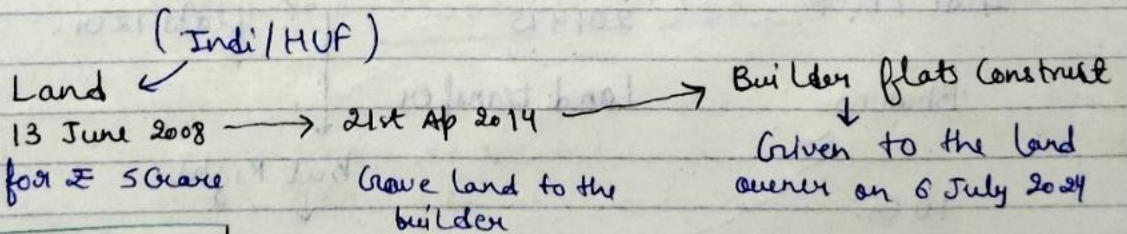 (Indi/HUF)
Land
13 June 2008 → 21st Ap 2014 → Builder flats Construct
for ₹ 5 Crore
Gave land to the
builder
Given to the land
owner on 6 July 2024